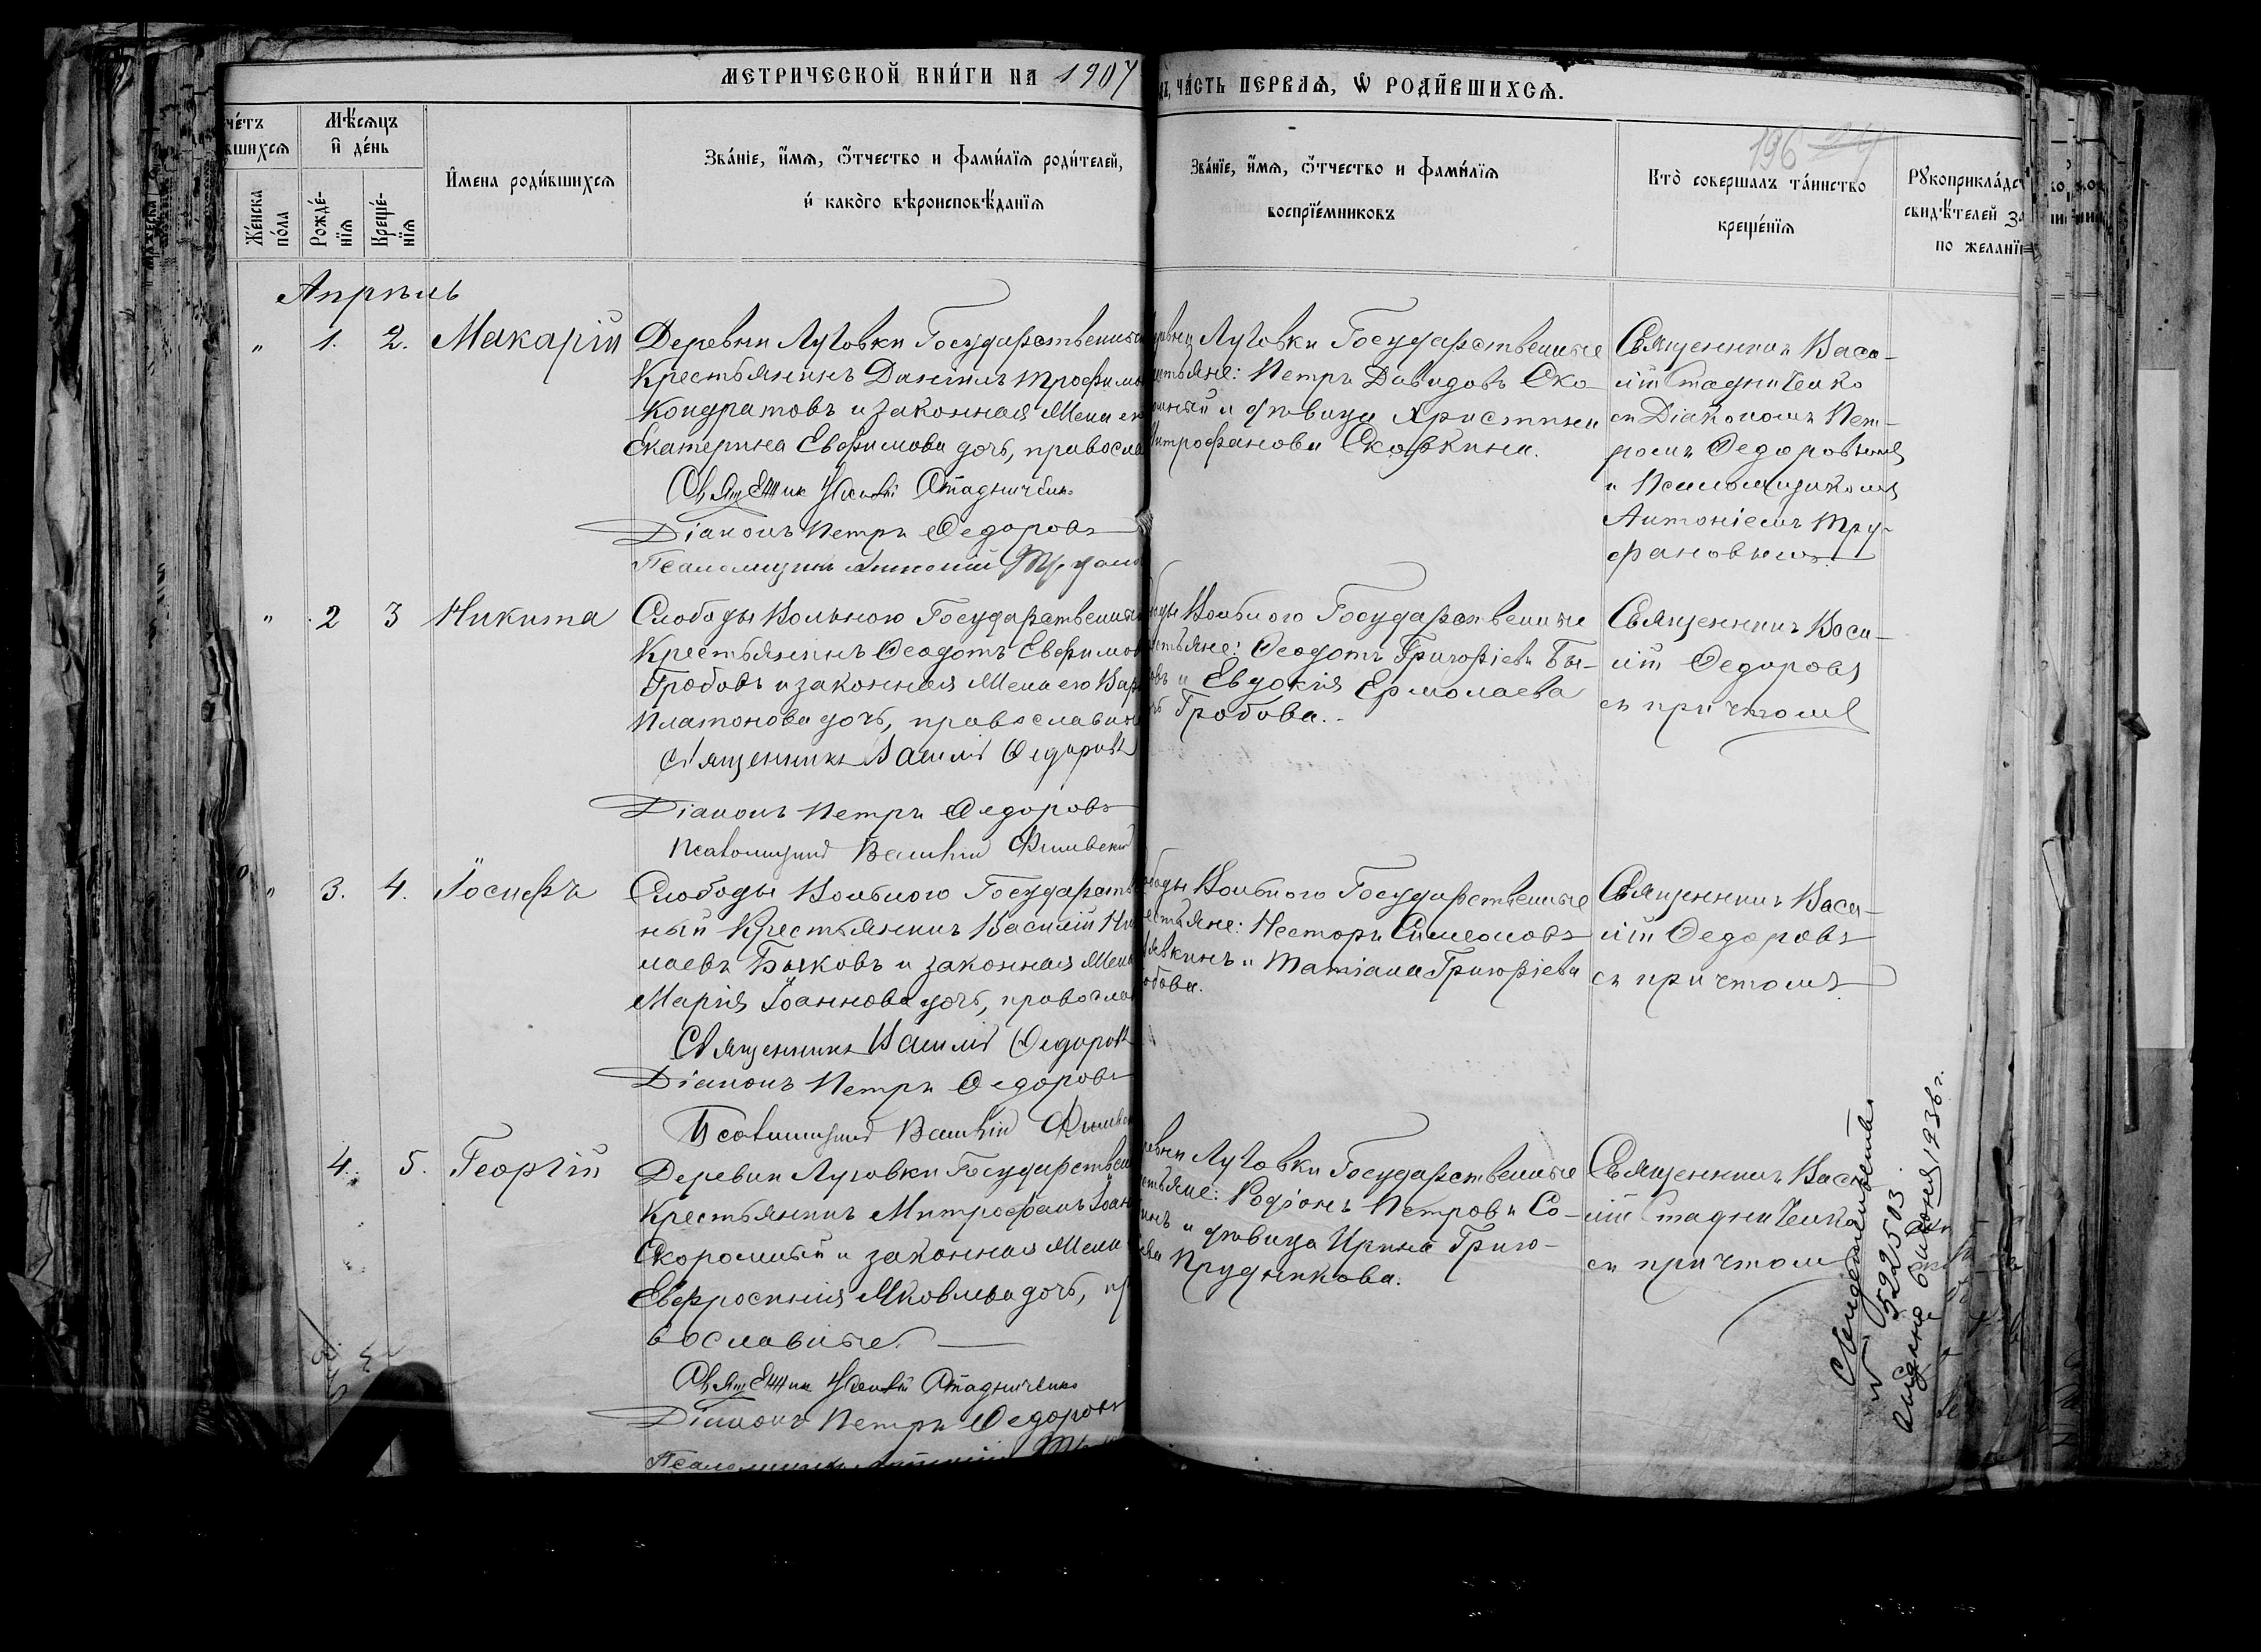 МЕТРИЧЕСКОЙ КНИ́ГИ НА 1907
ЧА́СТЬ ПЕРВАѦ, Ѡ РОДИ́ВШИХСѦ.
196 24
че́тъ
вшихсѧ
Мѣ́сѧцъ
и де́нь
Же́нска
по́ла
Рожде́-
нїѧ
Креще́-
нїѧ
И́мена роди́вшихсѧ
Зва́нїе, и́мѧ, ѻ́тчество и фами́лїѧ роди́телей,
и како́го вѣроисповѣ́данїѧ
Зва́нїе, и́мѧ, ѻ́тчество и фами́лїѧ
воспрїе́мниковъ
Кто̀ соверша́лъ та́инство
креще́нїѧ
Рꙋкоприкла́дст
свидѣ́телей за
по жела́нїю
Апрѣль
" 1. 2. Макарій
Деревни Луговки Государственный
Крестьянинъ Даниилъ Трофимо
Кондратовъ и законная жена ег
Екатерина Евфимова дочь, правосла
Священник Василій Стадниченко
Діаконъ Петръ Федоровъ
Псаломщикъ Антоній Труфано
Луговки Государственные
стьяне: Петръ Давидовъ Ско-
омный и дѣвица Христина
Митрофанова Сковкина.
Священникъ Васи-
лій Стадниченко
съ Діакономъ Пет-
ромъ Федоровымъ
и Псаломщикомъ
Антоніемъ Тру-
фановымъ.
" 2 3 Никита
Слободы Вольного Государственный
Крестьянинъ Феодотъ Евфимов
Гробовъ и законная жена его Вар
Платонова дочь, православн
Священникъ Василій Федоровъ
Діаконъ Петръ Федоровъ
Псаломщикъ Василій
Вольного Государственные
стьяне: Феодотъ Григоріевъ Бы-
овъ и Евдокія Ермолаева
Гробова.
Священникъ Васи-
лій Федоровъ
съ причтомъ
" 3. 4. Іосифъ
Слободы Вольного Государств
ный Крестьянинъ Василій Ни
лаевъ Быковъ и законная жена
Марія Іоаннова дочь, правосла
Священникъ Василій Федоровъ
Діаконъ Петръ Федоровъ
Псаломщикъ Василій
ободы Вольного Государственные
естьяне: Несторъ Симеоновъ
вкинъ и Татіана Григоріева
обова.
Священникъ Васи-
лій Федоровъ
съ причтомъ
4. 5. Георгій
Деревни Луговки Государствен
Крестьянинъ Митрофанъ Іоан
Скоромный и законная жена
Евфросинія Яковлева дочь, пр
вославные.
Священник Василій Стадниченко
Діаконъ Петръ Федоровъ
Псаломщикъ Антоній
евни Луговки Государственные
стьяне: Родіонъ Петровъ Со-
инъ и дѣвица Ирина Григо-
ева Прудникова.
Священникъ Васи-
лій Стадниченко
съ причтом
Свидетельство
№ 0592503
выдано 6 июня 1936 г.